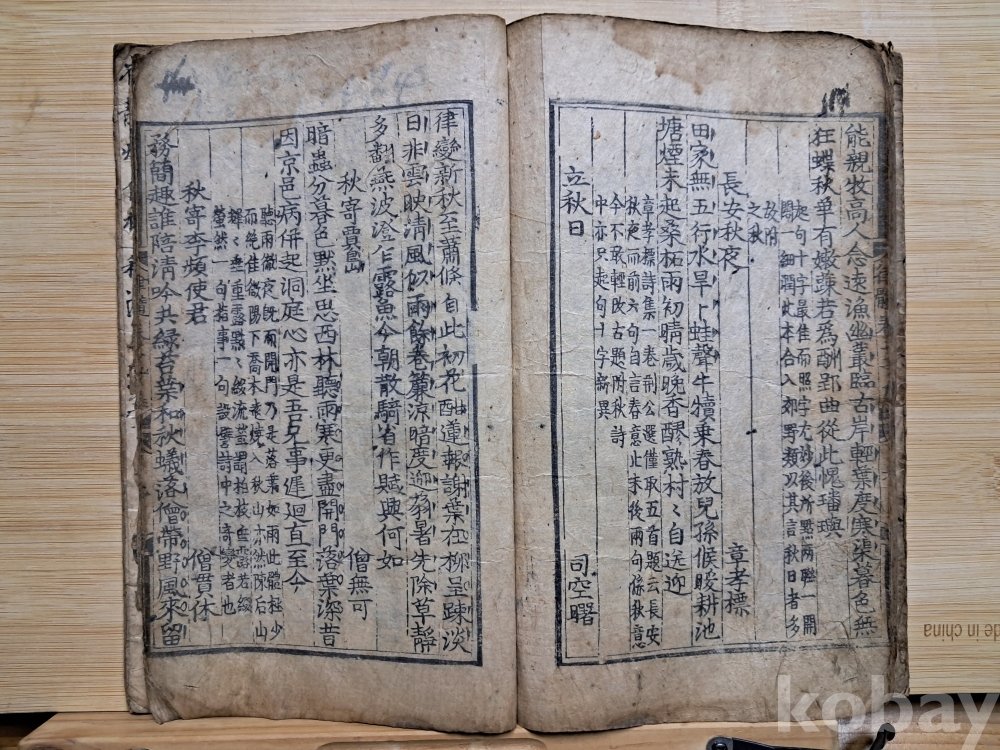 能親牧高人念遠漁幽叢臨古岸輕葉度寒渠暮色無
狂蝶秋華有嫩蔬若爲酬郢曲從此愧璠璵
起句十字最佳而照字尤妙後所點兩聯一開
闔一細潤此本合入郊野類以其言秋日者多
故附
之秋
長安秋夜 章孝標
田家無五行水旱卜蛙聲牛犢乗春放兒孫候暖耕池
塘煙未起桑柘雨初晴歳晩香醪熟村〻自送迎
章孝標詩集一卷荊公選僅取五首題云長安
秋夜而前六句自言春意止末後兩句係秋意
今不敢輕改古題附秋詩
中亦只起句十字新異
立秋日 司空曙
律變新秋至蕭條自此初花酣蓮報謝葉在柳呈疎淡
日非雲映清風似雨餘卷簾涼暗度迎扇暑先除草靜
多翻燕波澄乍露魚今朝散騎省作賦興何如
秋寄賈島 僧無可
暗蟲分暮色默坐思西林聽雨寒更盡開門落葉深昔
因京邑病併起洞庭心亦是吾兄事遲迴直至今
聽雨徹夜既而開門乃是落葉如雨此體極少
而絶佳微陽下喬木遠燒入秋山亦然陳后山
輝〻垂重露點〻綴流螢謂柏枝垂露若綴
螢然一句指事一句設譬詩中之奇變者也
秋寄李頻使君 僧貫休
務簡趣誰陪清吟共緑苔葉和秋蟻落僧帶野風來留
de in china
kobay